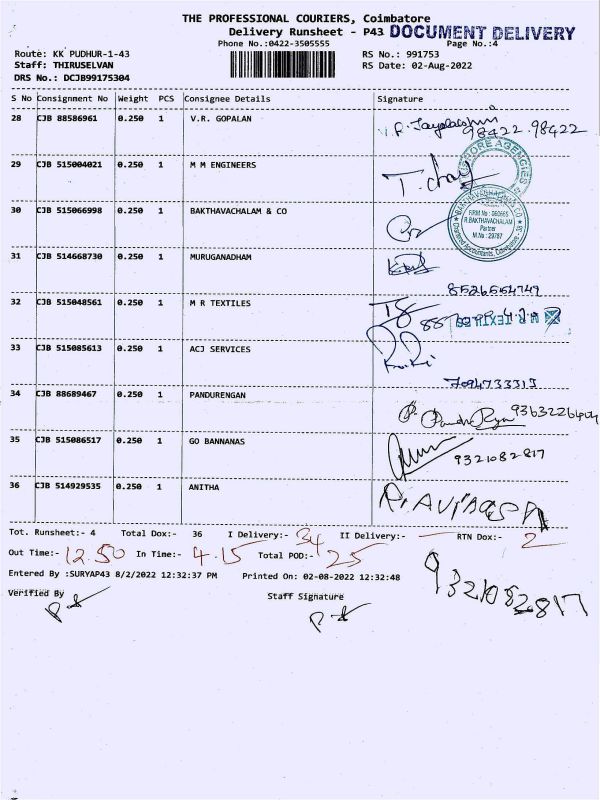 THE PROFESSIONAL COURIERS, Coimbatore
Delivery Runsheet - P43 DOCUMENT DELIVERY
Phone No.:0422-3505555 Page No.:4
Route: KK PUDHUR-1-43 RS No.: 991753
Staff: THIRUSELVAN RS Date: 02-Aug-2022
DRS No.: DCJB99175304
S No Consignment No Weight PCS Consignee Details Signature
28 CJB 88586961 0.250 1 V.R. GOPALAN
98422 98422
29 CJB 515004021 0.250 1 M M ENGINEERS
30 CJB 515066998 0.250 1 BAKTHAVACHALAM & CO
FIRM No
R.BAKTHAVACHALAM
Partner
M.No : 29787
Chartered Accountants, Coimbatore
31 CJB 514668730 0.250 1 MURUGANADHAM
8526554749
32 CJB 515048561 0.250 1 M R TEXTILES
M R TEXTILES
33 CJB 515085613 0.250 1 ACJ SERVICES
7094733313
34 CJB 88689467 0.250 1 PANDURENGAN
35 CJB 515086517 0.250 1 GO BANNANAS
9321082817
36 CJB 514929535 0.250 1 ANITHA
Tot. Runsheet:- 4 Total Dox:- 36 I Delivery:- 34 II Delivery:- — RTN Dox:- 2
Out Time:- 12.50 In Time:- 4.15 Total POD:- 25
Entered By :SURYAP43 8/2/2022 12:32:37 PM Printed On: 02-08-2022 12:32:48
9321082817
Verified By Staff Signature